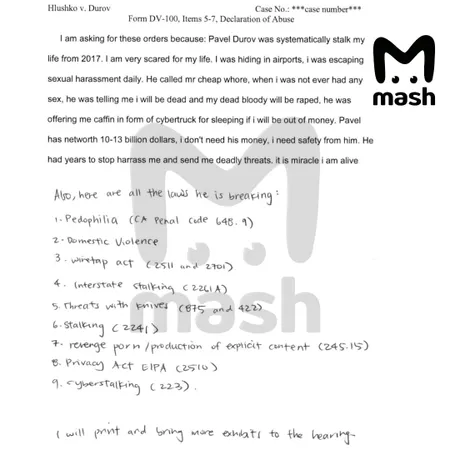 Hlushko v. Durov Case No.: ***case number***
Form DV-100, Items 5-7, Declaration of Abuse
mash
I am asking for these orders because: Pavel Durov was systematically stalk my
life from 2017. I am very scared for my life. I was hiding in airports, i was escaping
sexual harassment daily. He called mr cheap whore, when i was not ever had any
sex, he was telling me i will be dead and my dead bloody will be raped, he was
offering me caffin in form of cybertruck for sleeping if i will be out of money. Pavel
has networth 10-13 billion dollars, i don't need his money, i need safety from him. He
had years to stop harrass me and send me deadly threats. it is miracle i am alive
Also, here are all the laws he is breaking:
1. Pedophilia (CA Penal Code 648.9)
2- Domestic Violence
3. wiretap act (2511 and 2701)
4. Interstate stalking (2261A)
5. Threats with knives (875 and 422)
6. Stalking (2241)
7- revenge porn/production of explicit content (245.15)
8. Privacy Act EIPA (2510)
9. cyberstalking (223).
mash
I will print and bring more exhibits to the hearing-